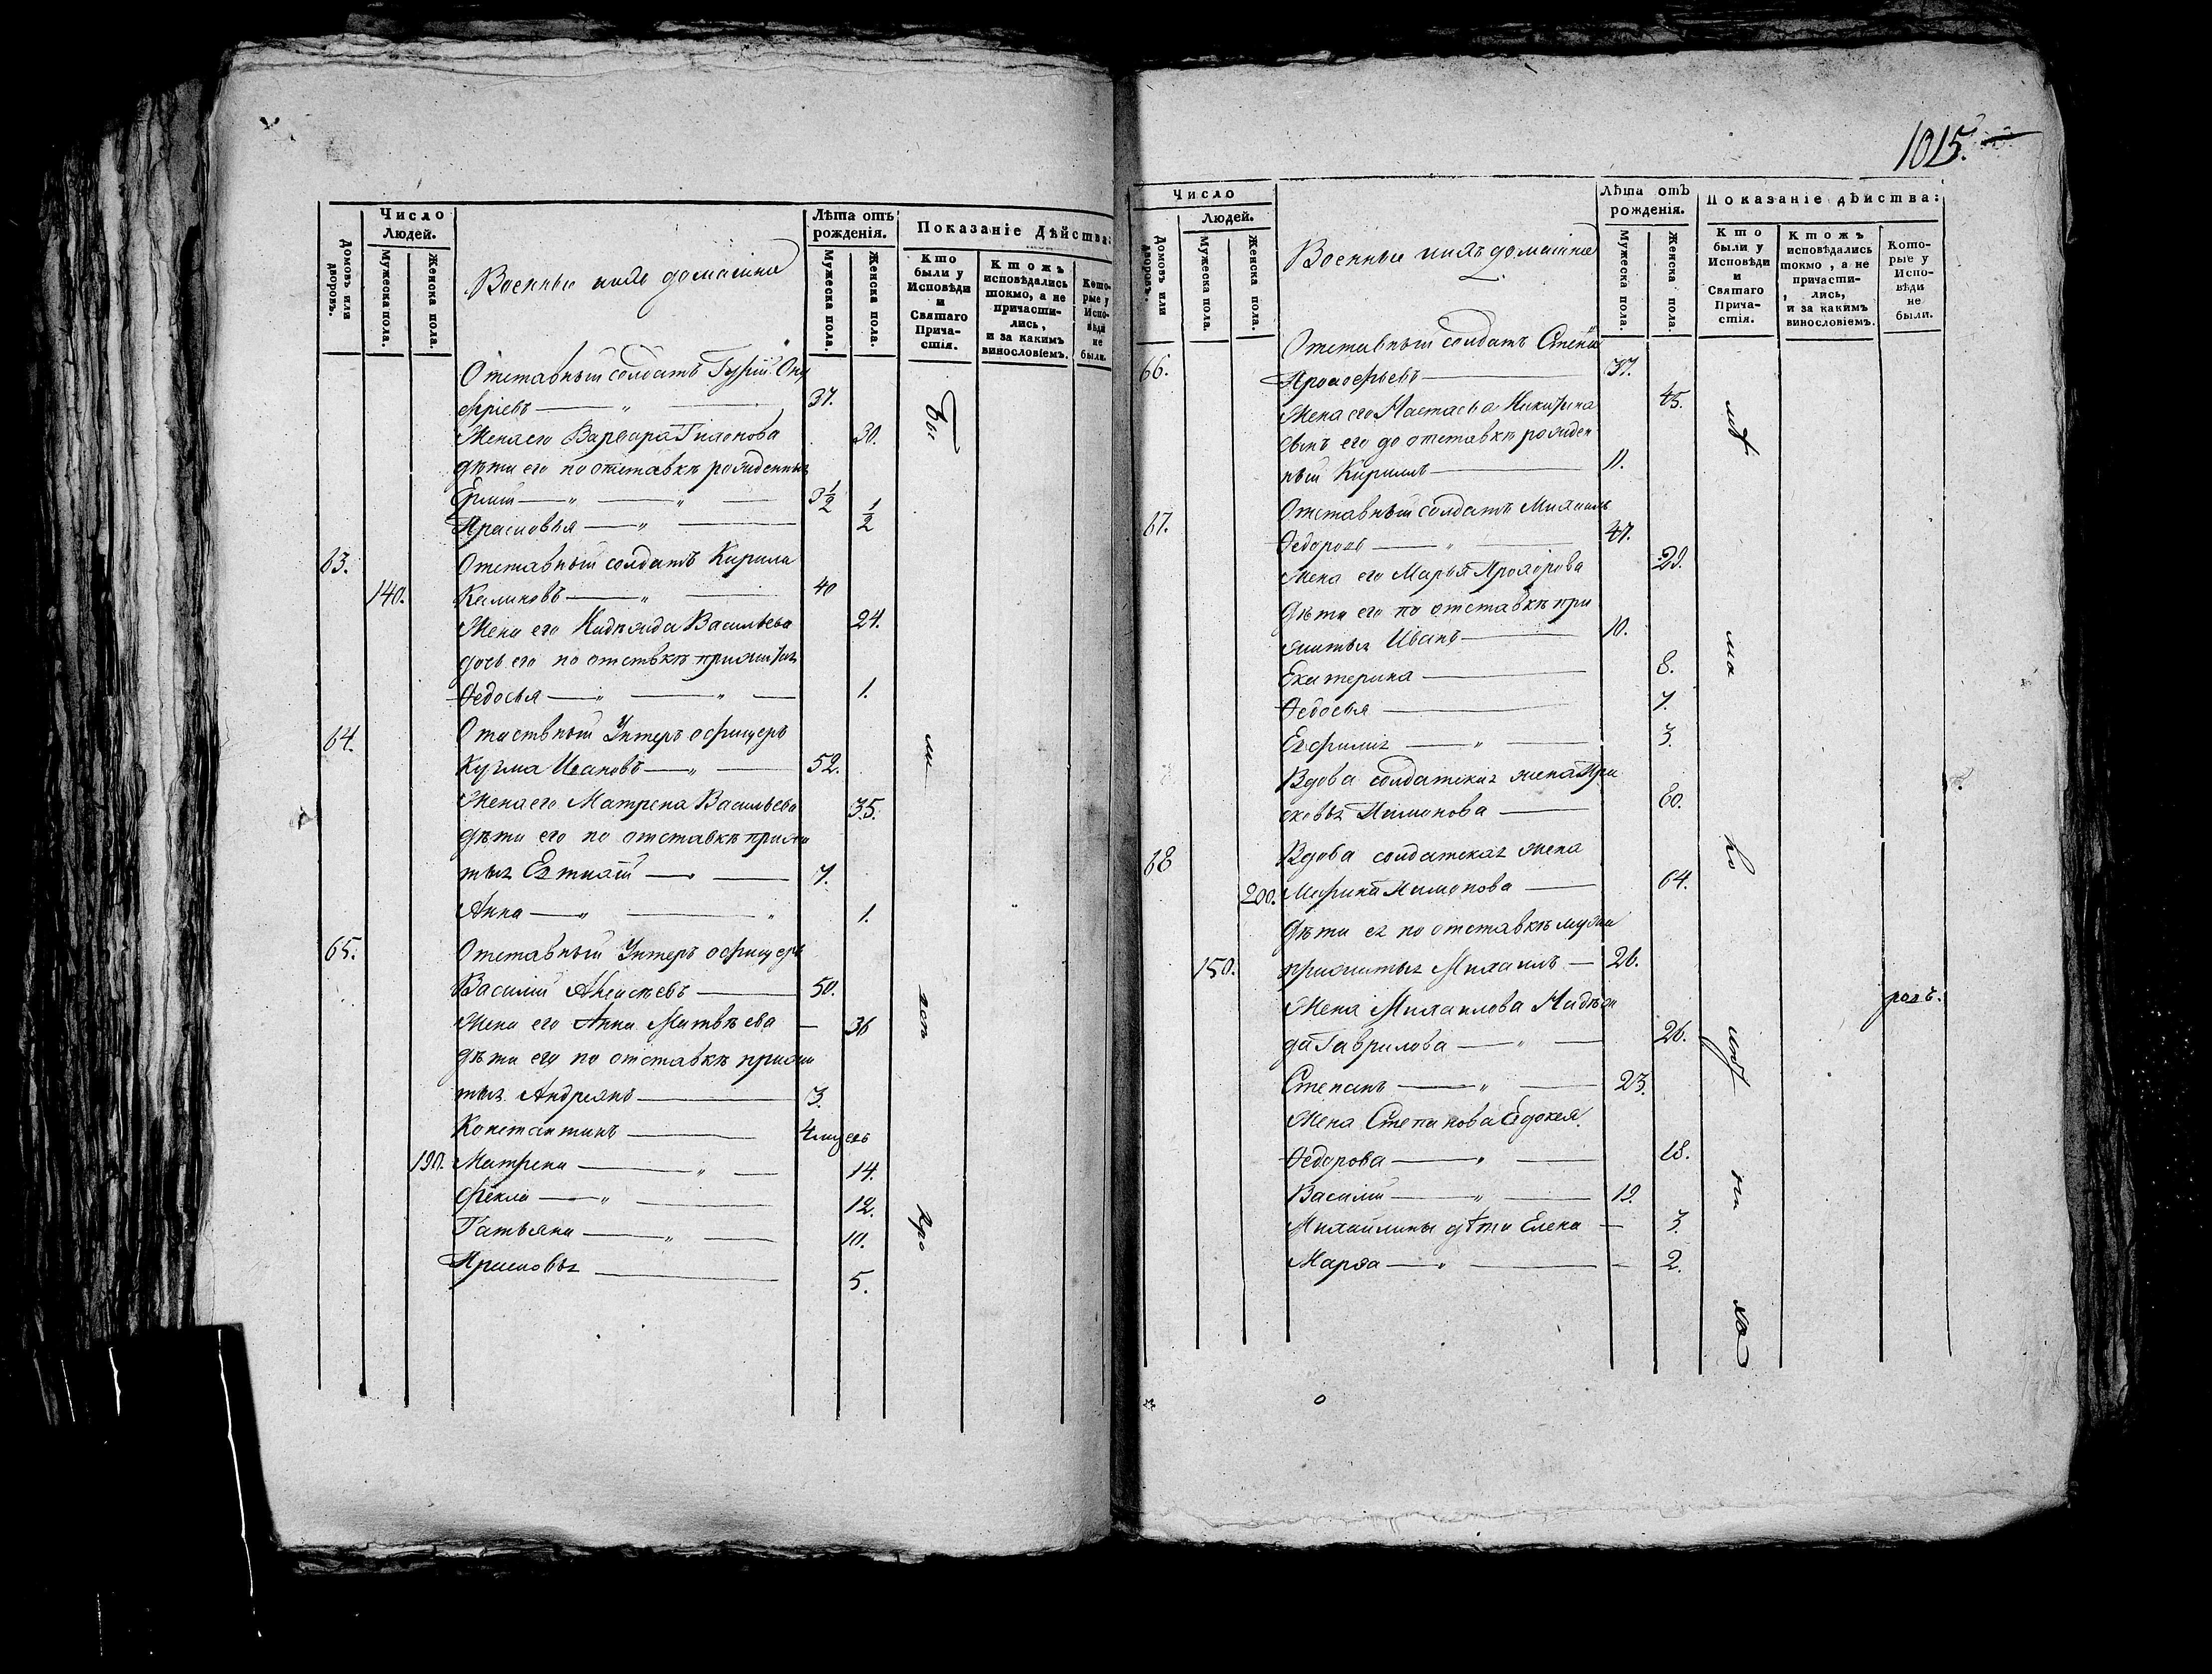 Число
Людей.
Домовъ или дворовъ.
Мужеска пола.
Женска пола.
Военные ихъ домашніе
Лѣта отъ
рожденія.
Мужеска пола.
Женска пола.
Показаніе Дѣйства:
Кто
были у
Исповѣди
и
Святаго
Прича-
стія.
Ктожъ
исповѣдались
токмо, а не
причасти-
лись,
и за какимъ
винословіемъ.
Кото-
рые у
Испо-
вѣди
не
были.
Отставный солдатъ Гурій Ону
фріевъ 37.
Жена его Варвара 30.
дѣти его по отставкѣ рожденныя
3 1/2
Прасковья 1/2
63. Отставный солдатъ Кирила
140. 40
Жена его Надѣжда Васильева 24.
дочь его по отствкѣ
Ѳедосья 1.
64. Отаствный Унтеръ офицеръ
Кузма Ивановъ 52.
Жена его Матрена Васильева 35.
дѣти его по отставкѣ прижи
тыя 7.
Анна 1.
65. Отставный Унтеръ офицеръ
Василій 50.
Жена его Анна Матвѣева 36
дѣти его по отставкѣ прижи
тыя Андреянъ 3.
Константинъ
190. Матрена 14.
Фекла 12.
Татьяна 10.
Прасковья 5.
1015.
Число
Людей.
Домовъ или дворовъ.
Мужеска пола.
Женска пола.
Военные ихъ домашніе
Лѣта отъ
рожденія.
Мужеска пола.
Женска пола.
Показаніе дѣйства:
Кто
были у
Исповѣди
и
Святаго
Прича-
стія.
Ктожъ
исповѣдались
токмо, а не
причасти-
лись,
и за какимъ
винословіемъ.
Кото-
рые у
Испо-
вѣди
не
были.
Отставный солдатъ
66. Прокофьевъ 37.
Жена его Настасья Никитина 45.
сынъ его до отставкѣ рожден
ный Кирилъ 11.
Отставный солдатъ Михаилъ
67. Ѳедоровъ 47.
Жена его Марья Прохорова 29.
Дѣти его по отставкѣ при
житыя Иванъ 10.
Екатерина 8.
Ѳедосья 7.
3.
Вдова солдатская жена Пра
сковья 60.
68 Вдова солдатская жена
200. 64.
Дѣти ея по отставкѣ
150. прижитыя Михаилъ 26.
Жена Михаилова Надѣж
да Гаврилова 26.
Степанъ 23.
Жена Степанова Евдокея
Ѳедорова 18.
Василій 19.
Михайлины дѣти Елена 3.
Марѳа 2.